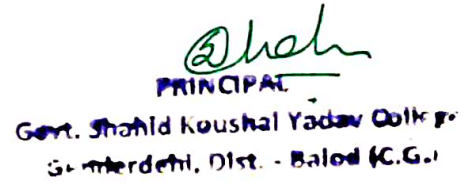 PRINCIPAL
Govt. Shahid Koushal Yadav College
Dist. - Balod (C.G.)